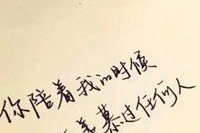 你陪着我的时候
羡慕过任何人